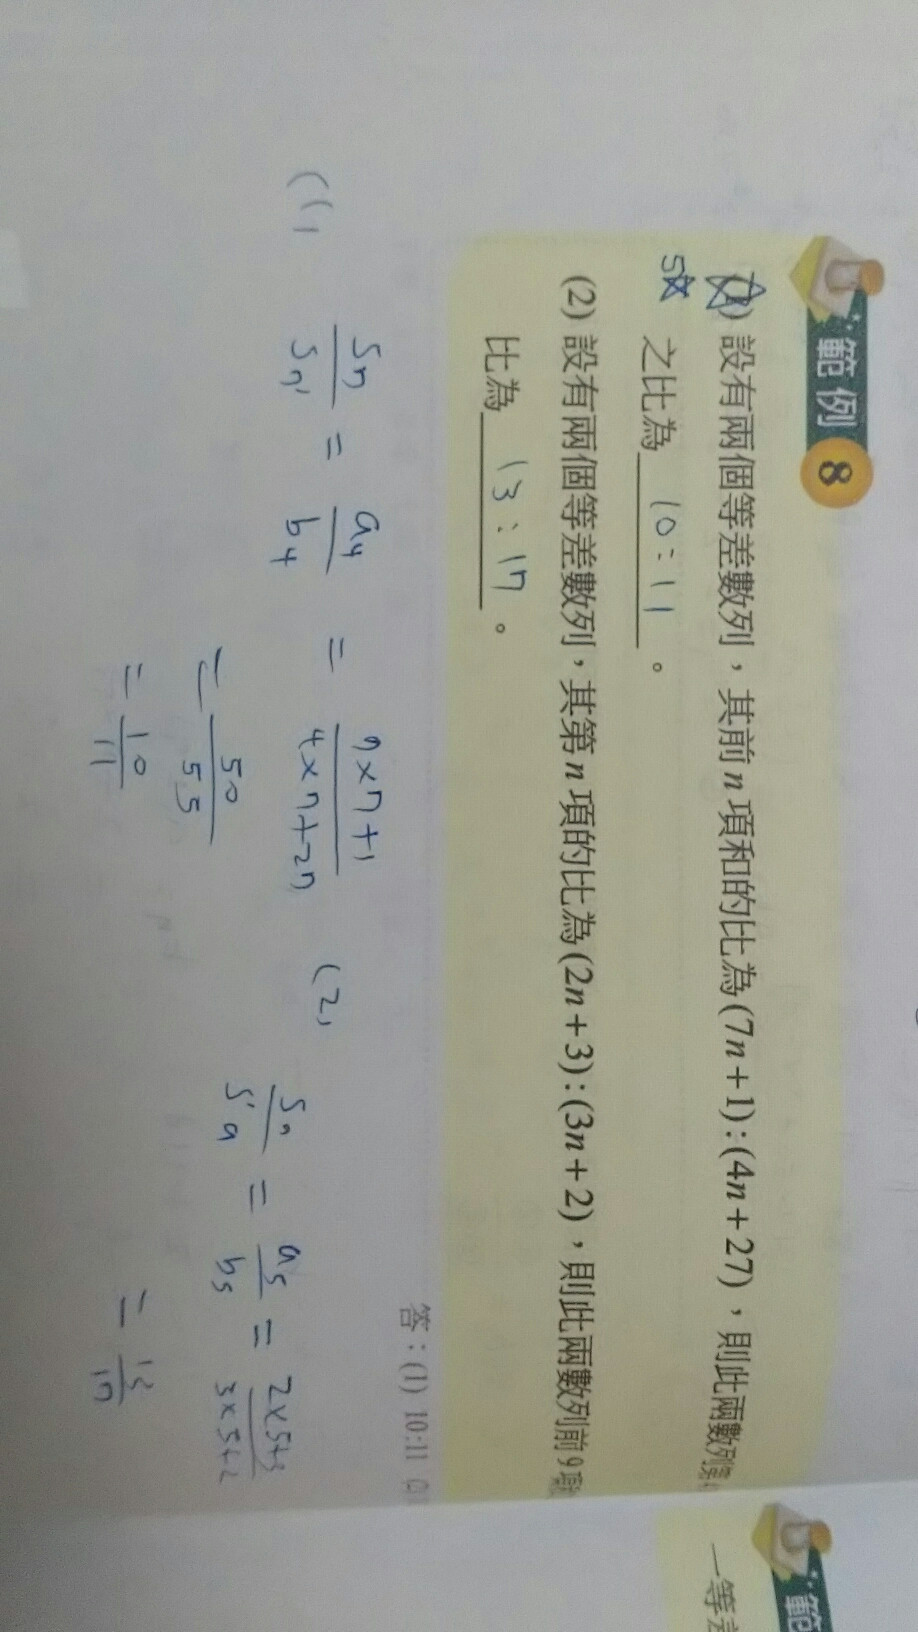 範例 8
(1) 設有兩個等差數列，其前 n 項和的比為 (7n+1):(4n+27)，則此兩數列第
5 之比為 10:11 。
(2) 設有兩個等差數列，其第 n 項的比為 (2n+3):(3n+2)，則此兩數列前 9 項
比為 13:17 。
答：(1) 10:11 (2)
(1) S7/S7' = a4/b4 = 7×7+1/4×7+27
= 50/55
= 10/11
(2) S9/S'9 = a5/b5 = 2×5+3/3×5+2
= 13/17
範
一等差